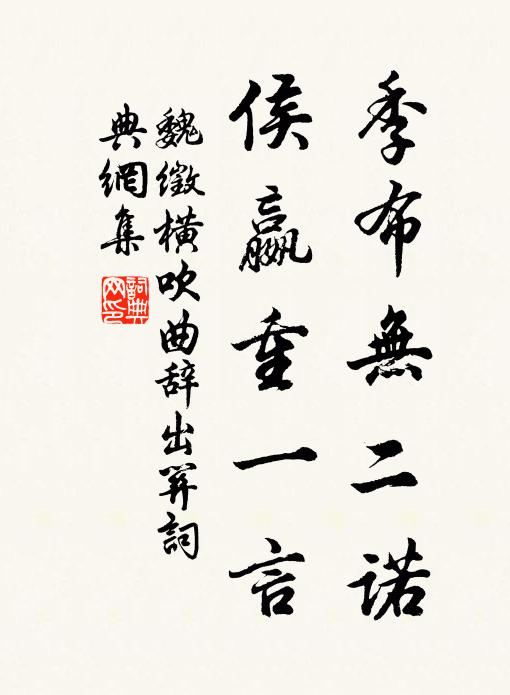 季布無二諾
侯嬴重一言
魏徵橫吹曲辭出關詞
典網集
詞典
网印